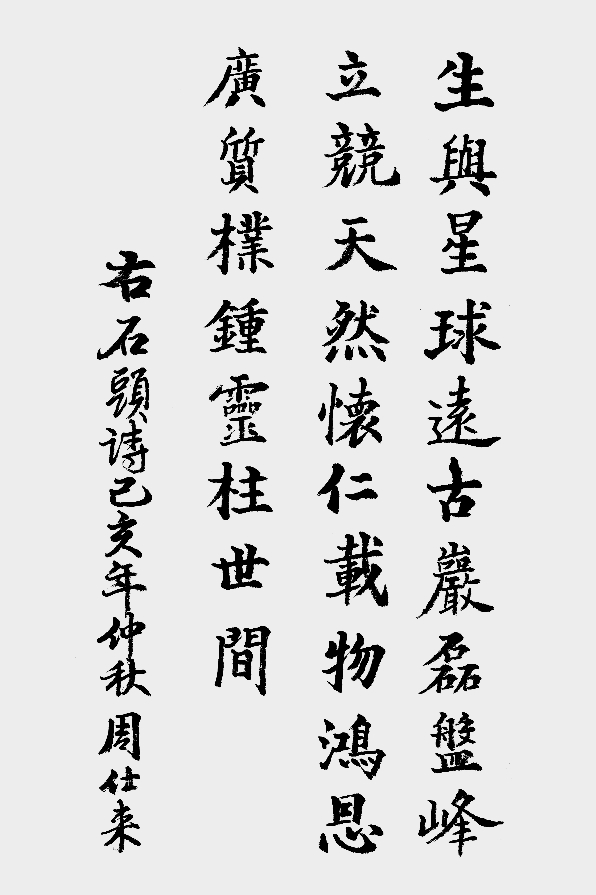 生與星球遠古巖磊盤峰
立競天然懷仁載物鴻恩
廣質樸鍾靈柱世間
右石頭诗己亥年仲秋周仕来